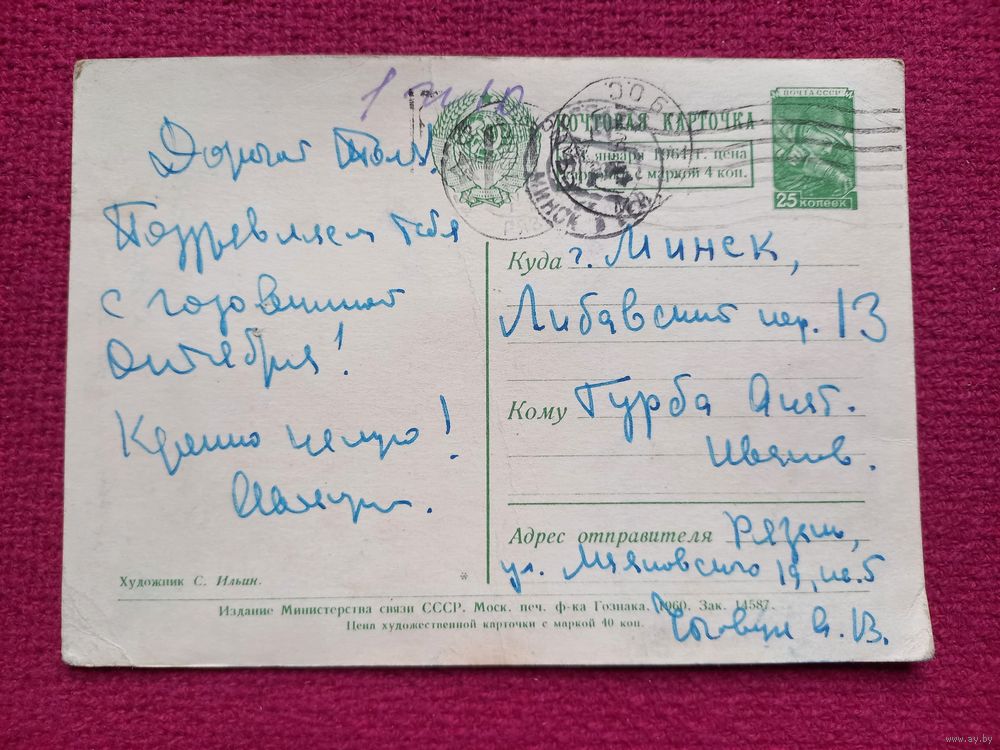 Дорогая Толя!
Поздравляем тебя
с годовщиной
Октября!
Крепко целую!
ПОЧТА СССР
25 копеек
ПОЧТОВАЯ КАРТОЧКА
января 1961 г. цена
с маркой 4 коп.
МИНСК
Куда г. Минск,
Либавский пер. 13
Кому Гурба Анат.
Иванов.
Адрес отправителя Рязань,
ул. Маяковского 19, кв. 5
А. В.
Художник С. Ильин.
*
Издание Министерства связи СССР. Моск. печ. ф-ка Гознака. 1960. Зак. 14587.
Цена художественной карточки с маркой 40 коп.
www.ay.by